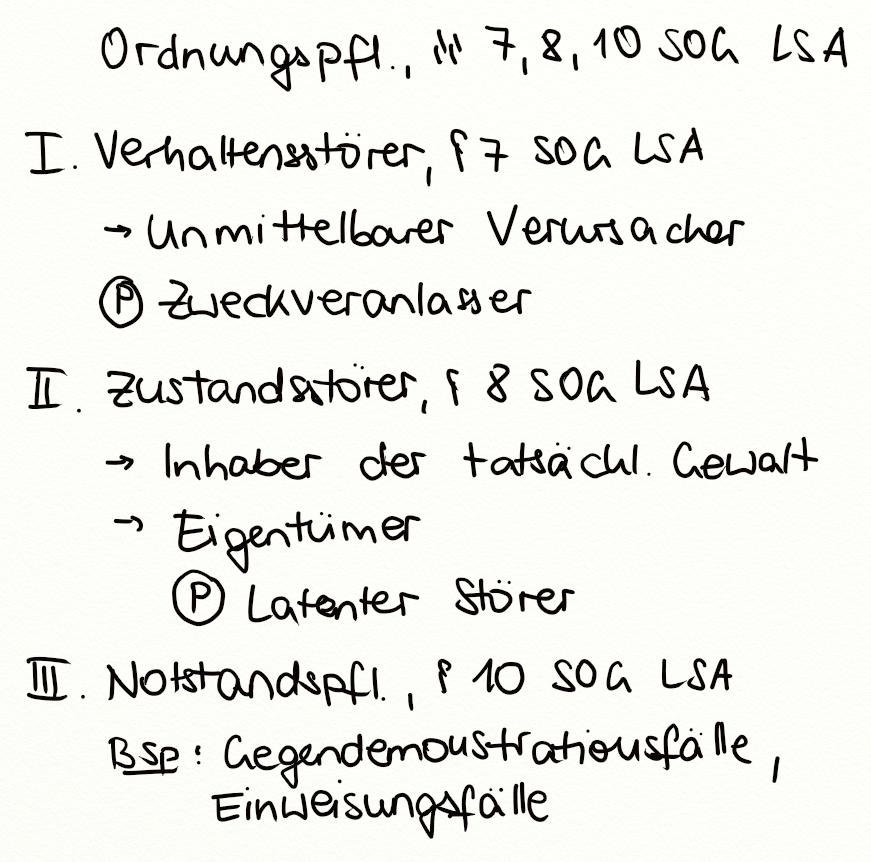 Ordnungspfl., §§ 7, 8, 10 SOG LSA
I. Verhaltensstörer, § 7 SOG LSA
→ Unmittelbarer Verursacher
Ⓟ Zweckveranlasser
II. Zustandsstörer, § 8 SOG LSA
→ Inhaber der tatsächl. Gewalt
→ Eigentümer
Ⓟ Latenter Störer
III. Notstandspfl., § 10 SOG LSA
Bsp: Gegendemonstrationsfälle,
Einweisungsfälle